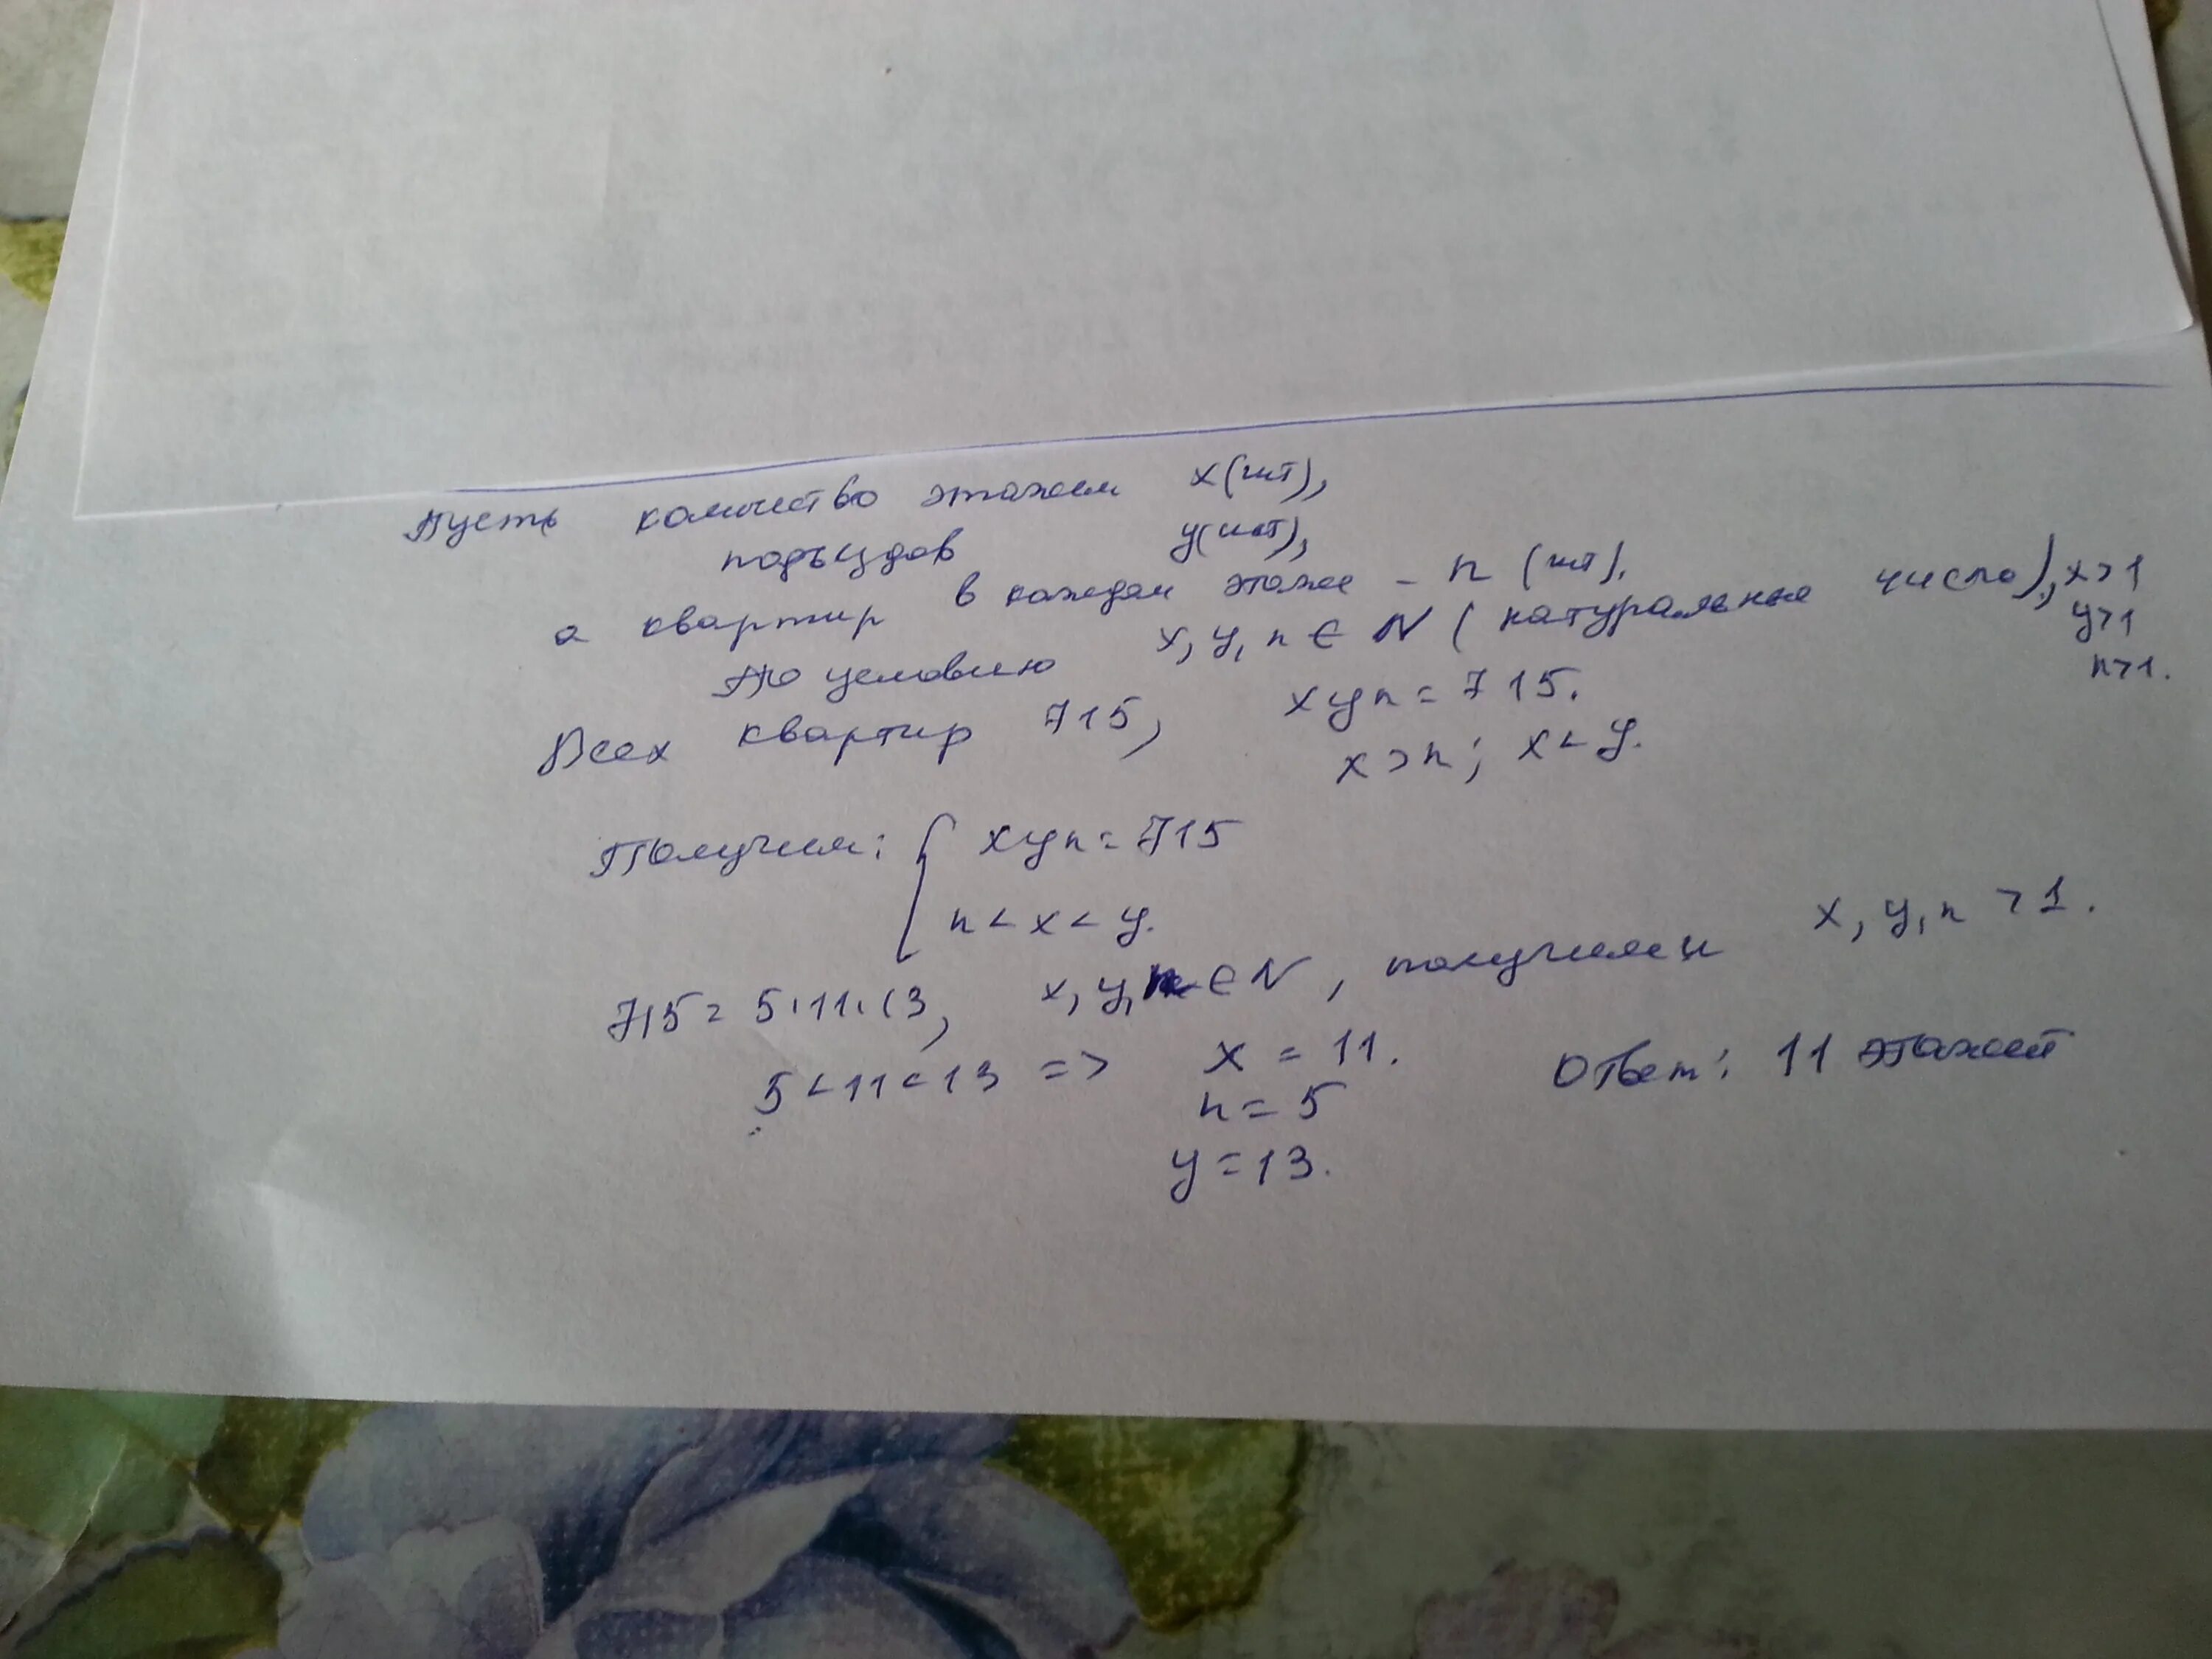 Пусть количество этажей x(шт),
подъездов y(шт),
а квартир в каждом этаже - n (шт).
По условию x, y, n ∈ N (натуральные число), x>1
y>1
n>1.
Всех квартир 715, xyn = 715.
x>n; x<y.
Получим: { xyn = 715
n < x < y.
715 = 5·11·13, x, y, n ∈ N, получием x, y, n > 1.
5 < 11 < 13 => x = 11. Ответ: 11 этажей
n = 5
y = 13.